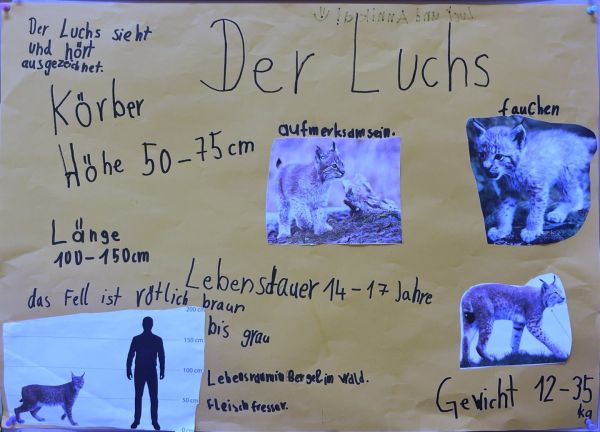 Der Luchs
Der Luchs sieht
und hört
ausgezeichnet.
Körber
Höhe 50-75cm
aufmerksamsein.
fauchen
Länge
100-150cm
Lebensdauer 14-17 Jahre
das Fell ist rötlich braun
bis grau
200 cm
150 cm
100 cm
50 cm
0 cm
Lebensraum in Bergel im Wald.
Fleisch fresser.
Gewicht 12-35
kg